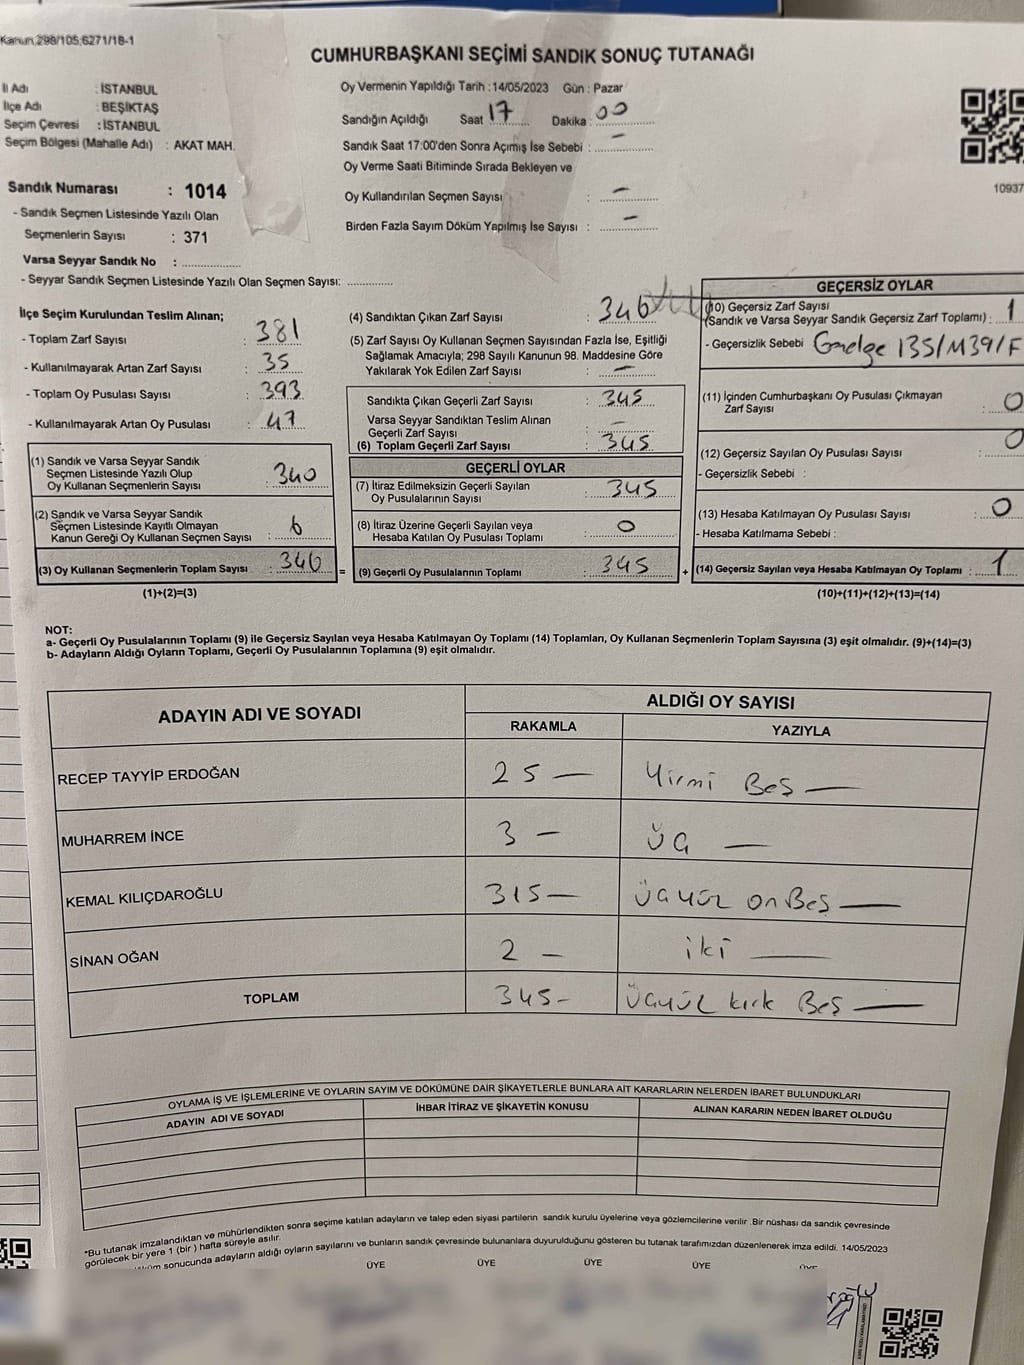 Kanun;298/105;6271/18-1
CUMHURBAŞKANI SEÇİMİ SANDIK SONUÇ TUTANAĞI
İl Adı : İSTANBUL
İlçe Adı : BEŞİKTAŞ
Seçim Çevresi : İSTANBUL
Seçim Bölgesi (Mahalle Adı) : AKAT MAH.
Sandık Numarası : 1014
- Sandık Seçmen Listesinde Yazılı Olan
Seçmenlerin Sayısı : 371
Varsa Seyyar Sandık No : ..............
- Seyyar Sandık Seçmen Listesinde Yazılı Olan Seçmen Sayısı: ............
Oy Vermenin Yapıldığı Tarih : 14/05/2023 Gün : Pazar
Sandığın Açıldığı Saat 17 Dakika : 00
Sandık Saat 17:00'den Sonra Açımış İse Sebebi : —
Oy Verme Saati Bitiminde Sırada Bekleyen ve
Oy Kullandırılan Seçmen Sayısı : —
Birden Fazla Sayım Döküm Yapılmış İse Sayısı : —
10937
İlçe Seçim Kurulundan Teslim Alınan;
- Toplam Zarf Sayısı : 381
- Kullanılmayarak Artan Zarf Sayısı : 35
- Toplam Oy Pusulası Sayısı : 393
- Kullanılmayarak Artan Oy Pusulası : 47
(1) Sandık ve Varsa Seyyar Sandık
Seçmen Listesinde Yazılı Olup
Oy Kullanan Seçmenlerin Sayısı : 340
(2) Sandık ve Varsa Seyyar Sandık
Seçmen Listesinde Kayıtlı Olmayan
Kanun Gereği Oy Kullanan Seçmen Sayısı : 6
(3) Oy Kullanan Seçmenlerin Toplam Sayısı : 346
(1)+(2)=(3)
(4) Sandıktan Çıkan Zarf Sayısı : 346
(5) Zarf Sayısı Oy Kullanan Seçmen Sayısından Fazla İse, Eşitliği
Sağlamak Amacıyla; 298 Sayılı Kanunun 98. Maddesine Göre
Yakılarak Yok Edilen Zarf Sayısı : —
Sandıkta Çıkan Geçerli Zarf Sayısı : 345
Varsa Seyyar Sandıktan Teslim Alınan
Geçerli Zarf Sayısı : —
(6) Toplam Geçerli Zarf Sayısı : 345
GEÇERLİ OYLAR
(7) İtiraz Edilmeksizin Geçerli Sayılan
Oy Pusulalarının Sayısı : 345
(8) İtiraz Üzerine Geçerli Sayılan veya
Hesaba Katılan Oy Pusulası Toplamı : 0
= (9) Geçerli Oy Pusulalarının Toplamı : 345
GEÇERSİZ OYLAR
(10) Geçersiz Zarf Sayısı
(Sandık ve Varsa Seyyar Sandık Geçersiz Zarf Toplamı) : 1
- Geçersizlik Sebebi : Genelge 135/M39/F
(11) İçinden Cumhurbaşkanı Oy Pusulası Çıkmayan
Zarf Sayısı : 0
(12) Geçersiz Sayılan Oy Pusulası Sayısı : 0
- Geçersizlik Sebebi :
(13) Hesaba Katılmayan Oy Pusulası Sayısı : 0
- Hesaba Katılmama Sebebi :
+ (14) Geçersiz Sayılan veya Hesaba Katılmayan Oy Toplamı : 1
(10)+(11)+(12)+(13)=(14)
NOT:
a- Geçerli Oy Pusulalarının Toplamı (9) ile Geçersiz Sayılan veya Hesaba Katılmayan Oy Toplamı (14) Toplamları, Oy Kullanan Seçmenlerin Toplam Sayısına (3) eşit olmalıdır. (9)+(14)=(3)
b- Adayların Aldığı Oyların Toplamı, Geçerli Oy Pusulalarının Toplamına (9) eşit olmalıdır.
ADAYIN ADI VE SOYADI
ALDIĞI OY SAYISI
RAKAMLA YAZIYLA
RECEP TAYYİP ERDOĞAN 25 — Yirmi Beş —
MUHARREM İNCE 3 — Üç —
KEMAL KILIÇDAROĞLU 315 — Üçyüz on Beş —
SİNAN OĞAN 2 — iki —
TOPLAM 345 - Üçyüz kırk Beş —
OYLAMA İŞ VE İŞLEMLERİNE VE OYLARIN SAYIM VE DÖKÜMÜNE DAİR ŞİKAYETLERLE BUNLARA AİT KARARLARIN NELERDEN İBARET BULUNDUKLARI
ADAYIN ADI VE SOYADI İHBAR İTİRAZ VE ŞİKAYETİN KONUSU ALINAN KARARIN NEDEN İBARET OLDUĞU
*Bu tutanak imzalandıktan ve mühürlendikten sonra seçime katılan adayların ve talep eden siyasi partilerin sandık kurulu üyelerine veya gözlemcilerine verilir .Bir nüshası da sandık çevresinde
görülecek bir yere 1 (bir ) hafta süreyle asılır.
sonucunda adayların aldığı oyların sayılarını ve bunların sandık çevresinde bulunanlara duyurulduğunu gösteren bu tutanak tarafımızdan düzenlenerek imza edildi. 14/05/2023
ÜYE ÜYE ÜYE ÜYE